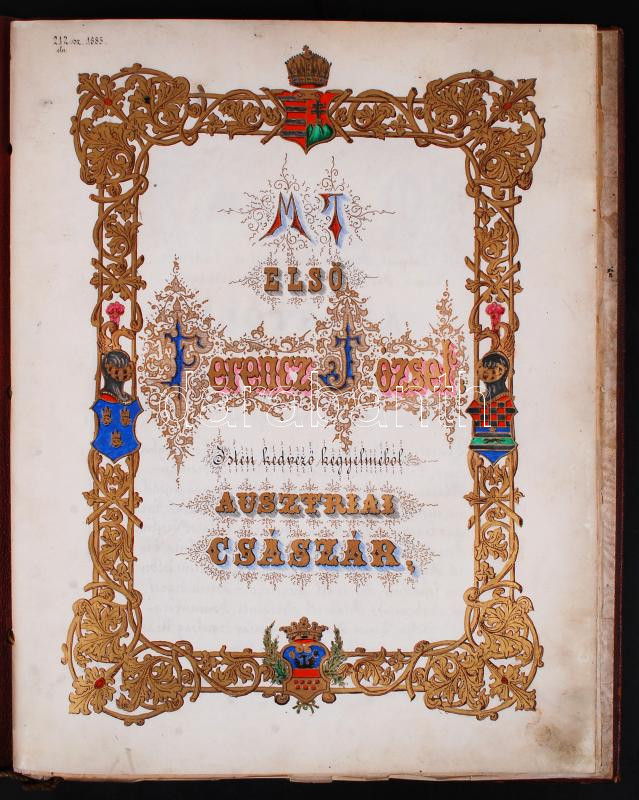 212 sz. 1885.
M T
ELSŐ
Ferencz József
Isten kedvező kegyelméből
AUSZTRIAI
CSÁSZÁR,
darabanth